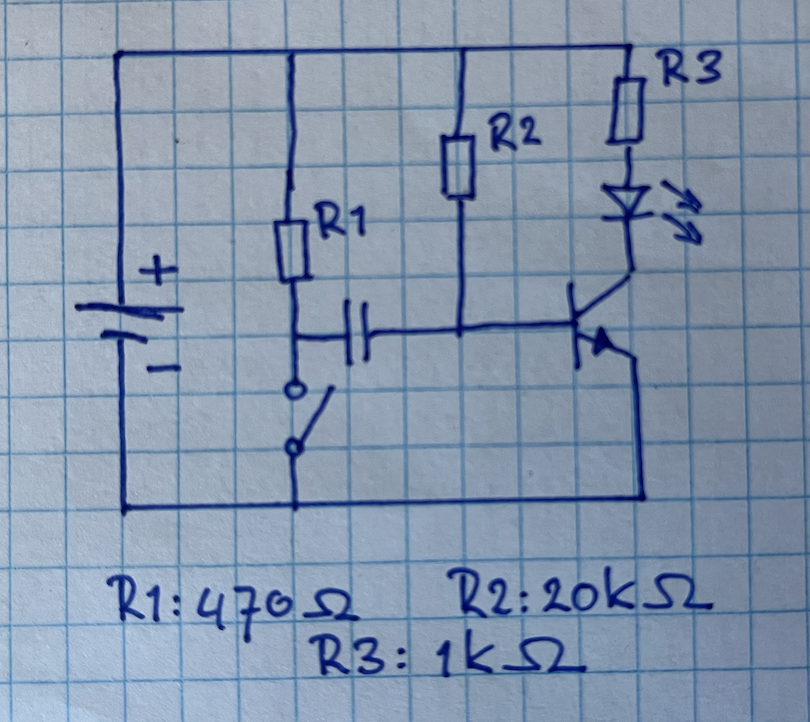 R3
R2
R1
+
−
R1: 470Ω R2: 20kΩ
R3: 1kΩ